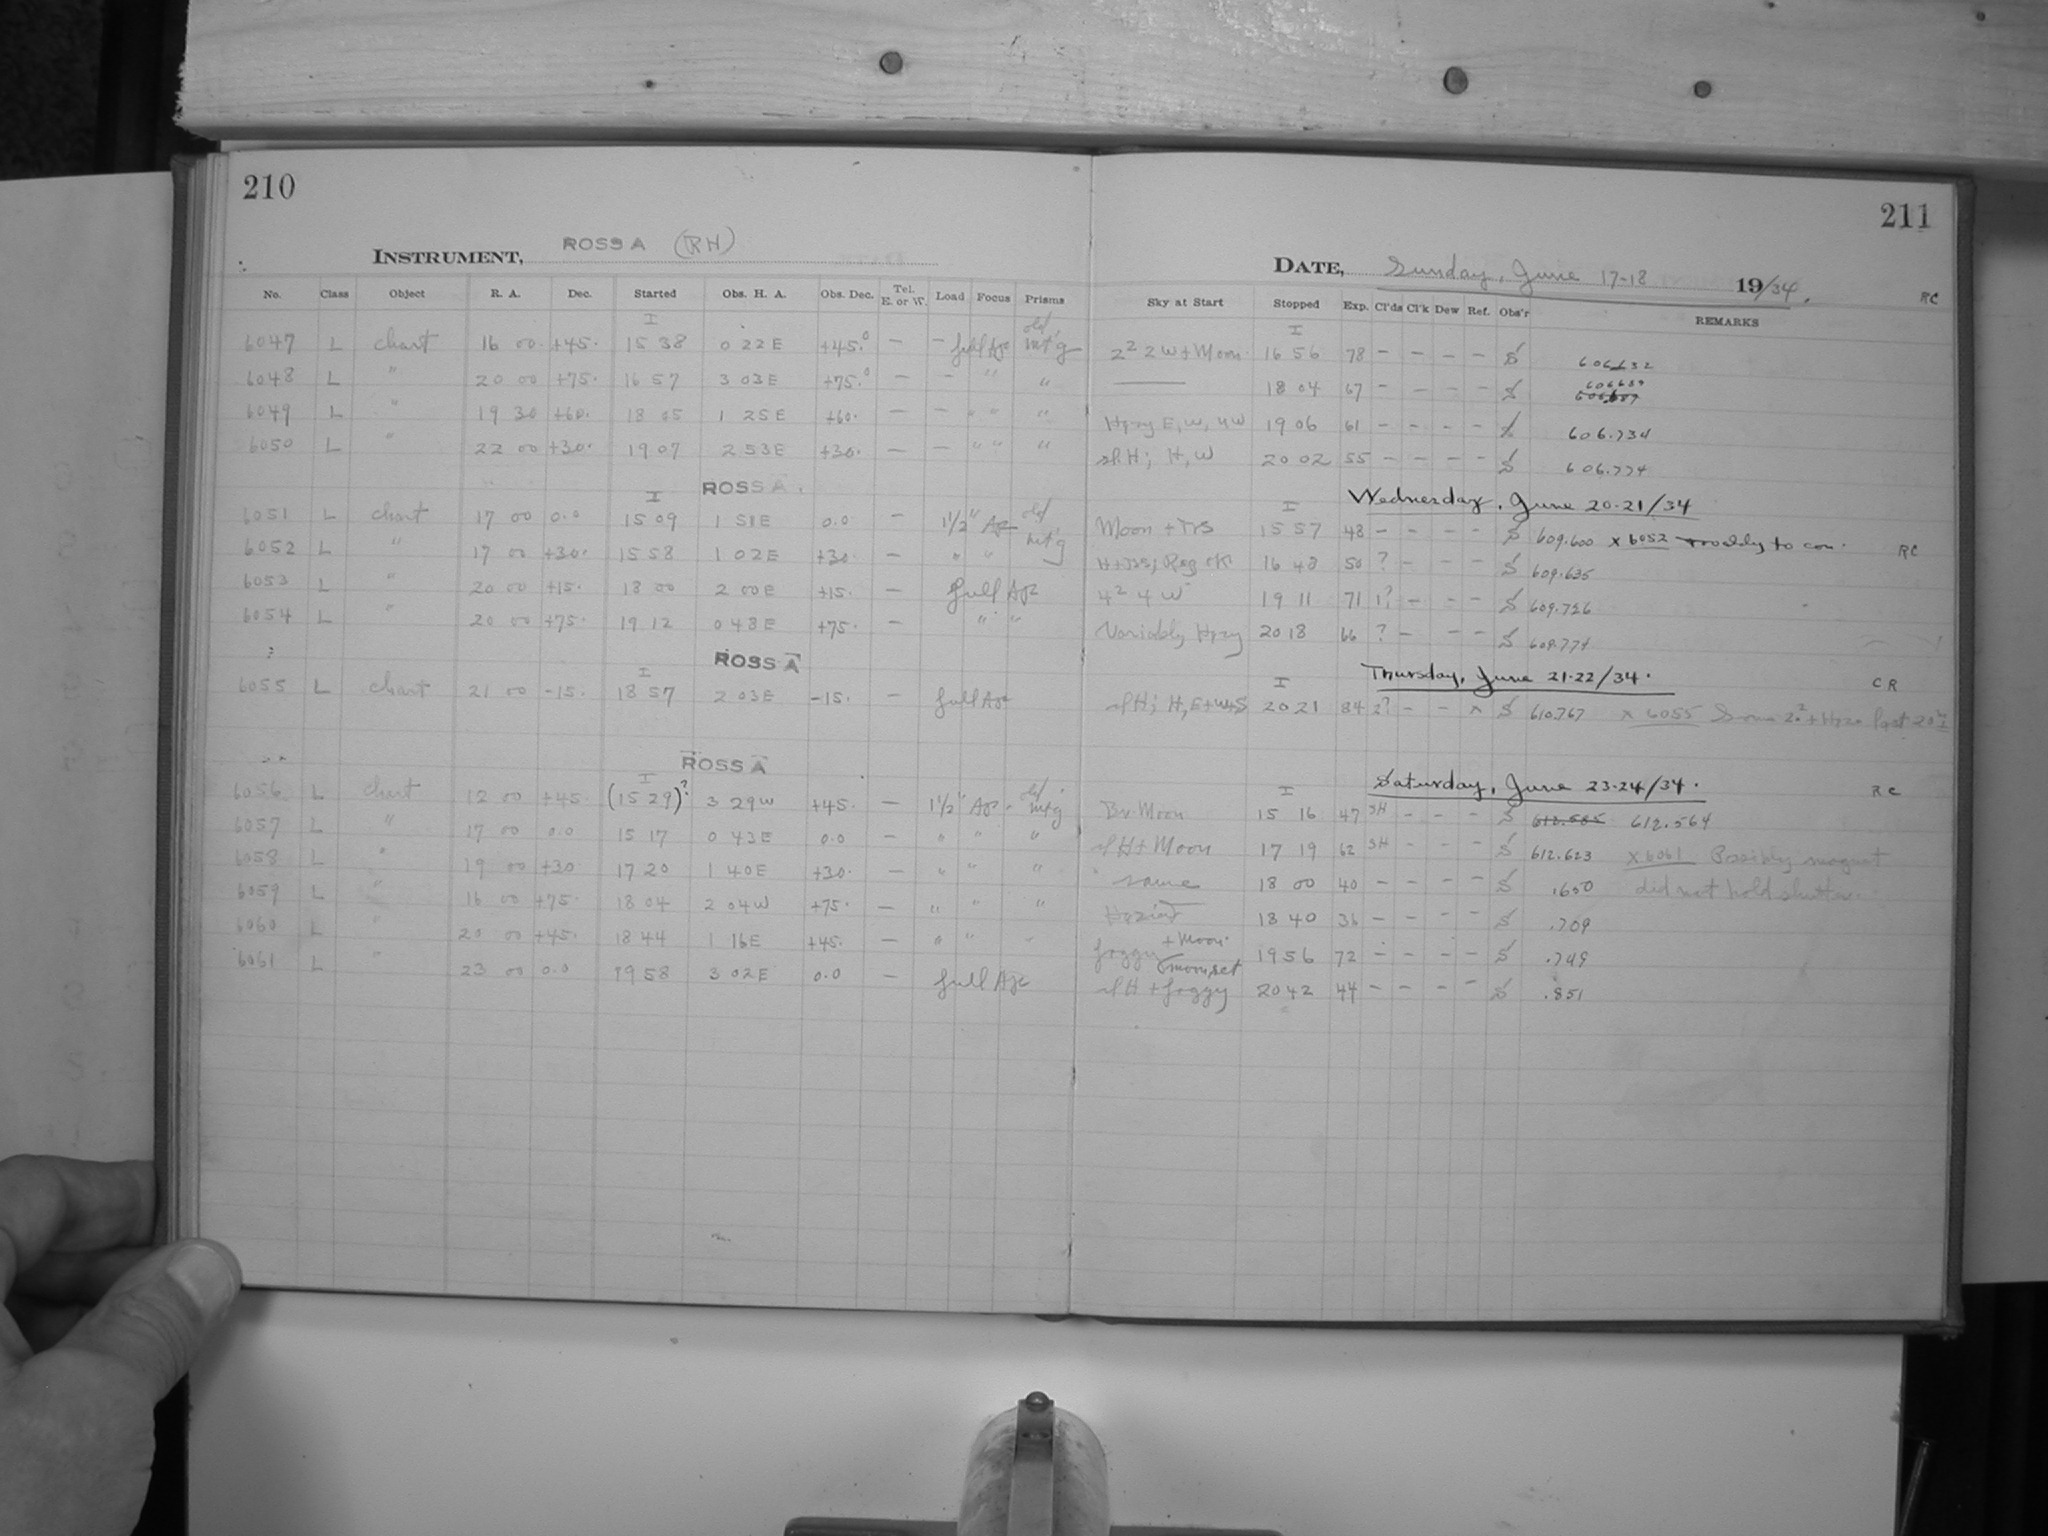 210
INSTRUMENT, ROSS A (RH)
No. Class Object R. A. Dec. Started Obs. H. A. Obs. Dec. Tel. E. or W. Load Focus Prisms
I
6047 L chart 16 00 +45. 15 38 0 22 E +45.° — — full Ap old mt'g
6048 L " 20 00 +75. 16 57 3 03 E +75.° — — " "
6049 L " 19 30 +60. 18 05 1 25 E +60. — — " " "
6050 L " 22 00 +30. 19 07 2 53 E +30. — — " " "
I ROSS A.
6051 L chart 17 00 0.0 15 09 1 51 E 0.0 — 1½" Ap old mt'g
6052 L " 17 00 +30. 15 58 1 02 E +30. — " "
6053 L " 20 00 +15. 18 00 2 00 E +15. — full Ap
6054 L " 20 00 +75. 19 12 0 48 E +75. — " "
I ROSS A
6055 L chart 21 00 -15. 18 57 2 03 E -15. — full Ap
I ROSS A
6056 L chart 12 00 +45. (15 29)? 3 29 W +45. — 1½" Ap. old mt'g
6057 L " 17 00 0.0 15 17 0 43 E 0.0 — " " "
6058 L " 19 00 +30 17 20 1 40 E +30. — " " "
6059 L " 16 00 +75. 18 04 2 04 W +75. — " " "
6060 L " 20 00 +45. 18 44 1 16 E +45. — " " "
6061 L " 23 00 0.0 19 58 3 02 E 0.0 — full Ap
211
DATE, Sunday, June 17-18 19/34.
RC
Sky at Start Stopped Exp. Cl'ds Cl'k Dew Ref. Obs'r REMARKS
I
2² 2W + Moon 16 56 78 — — — — S 606.632
—— 18 04 67 — — — — S 606.689
Hazy E, W, 4W 19 06 61 — — — — S 606.734
sl. H; H, W 20 02 55 — — — — S 606.774
I Wednesday, June 20-21/34
Moon + 15 57 48 — — — — S 609.600 x 6052 to con. RC
16 48 50 ? — — — S 609.635
4² 4W 19 11 71 1? — — — S 609.726
Variably Hazy 20 18 66 ? — — — S 609.774
I Thursday, June 21-22/34. CR
sl H; H, E+W+S 20 21 84 2? — — x S 610.767 x 6055 Some 2.² +
I Saturday, June 23-24/34. RC
Br. Moon 15 16 47 SH — — — S 612.585 612.564
sl H + Moon 17 19 62 SH — — — S 612.623 x 6061 Possibly magnet
same 18 00 40 — — — — S .650 did not hold shutter.
Hazier 18 40 36 — — — — S .709
foggy + Moon. 19 56 72 — — — — S .749
moonset
sl H + foggy 20 42 44 — — — — S .851